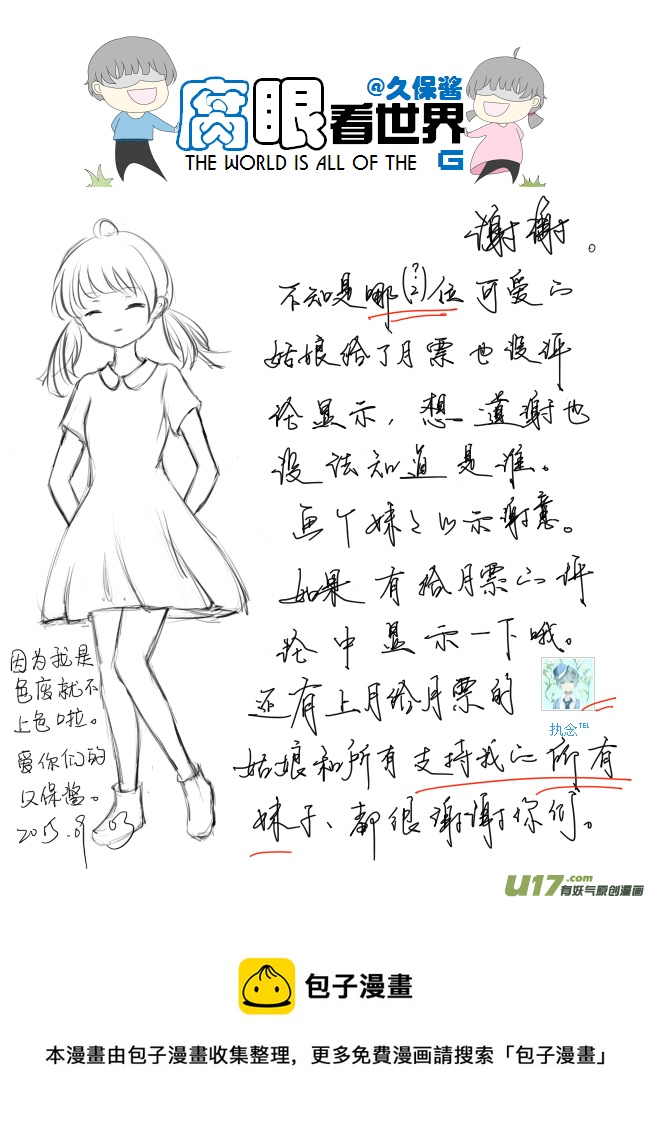 @久保酱
腐眼看世界
THE WORLD IS ALL OF THE G
谢谢。
不知是哪(?2)位可爱の
姑娘给了月票也没评
论显示,想道谢也
没法知道是谁。
画个妹子以示谢意。
如果有给月票の评
论中显示一下哦。
还有上月给月票的
执念℡
姑娘和所有支持我の所有
妹子、都很谢谢你们。
因为我是
色废就不
上色啦。
爱你们的
久保酱。
2015.09.03
U17.com
有妖气原创漫画
包子漫畫
本漫畫由包子漫畫收集整理,更多免費漫画請搜索「包子漫畫」